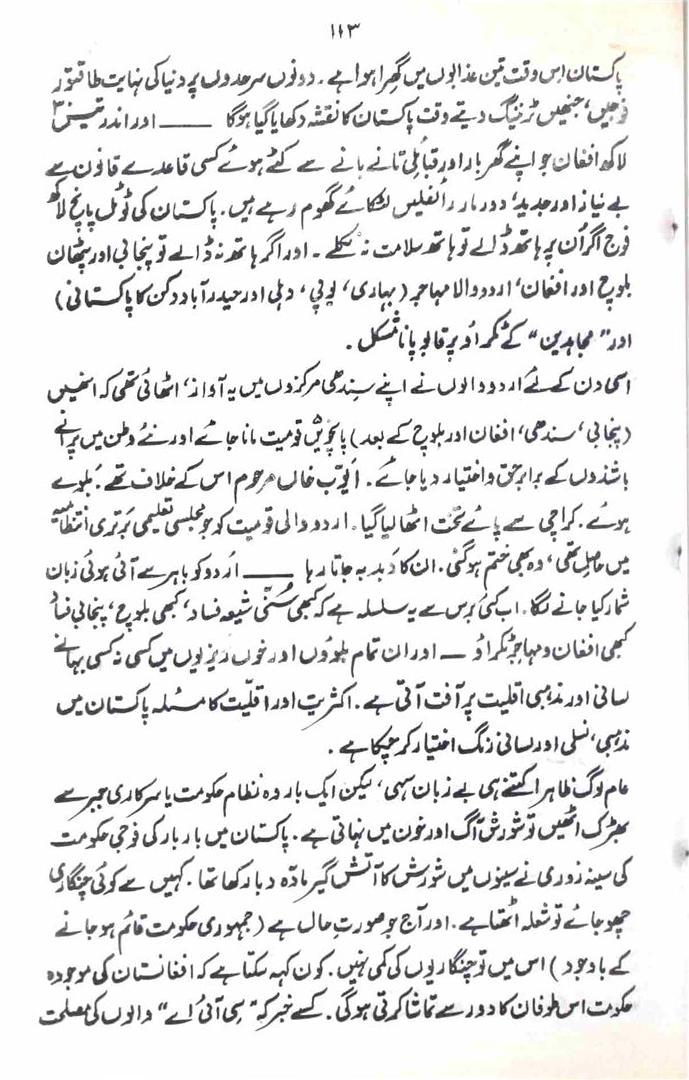 ۱۱۳
پاکستان اس وقت تین عذابوں میں گھرا ہوا ہے۔ دونوں سرحدوں پر دنیا کی نہایت طاقتور
فوجیں، جنھیں ٹریننگ دیتے وقت پاکستان کا نقشہ دکھایا گیا ہوگا —— اور اندر تیس ۳۰
لاکھ افغان جو اپنے گھر بار اور قبائلی تانے بانے سے کٹے ہوئے کسی قاعدے قانون سے
بے نیاز اور جدید، دور مار رائفلیں لٹکائے گھوم رہے ہیں۔ پاکستان کی ٹوٹل پانچ لاکھ
فوج اگر اُن پر ہاتھ ڈالے تو ہاتھ سلامت نہ نکلے۔ اور اگر ہاتھ نہ ڈالے تو پنجابی اور پٹھان
بلوچ اور افغان، اردو والا مہاجر (بہاری، یوپی، دہلی اور حیدرآباد دکن کا پاکستانی)
اور "مجاہدین" کے ٹکراؤ پر قابو پانا مشکل۔
اسی دن کے لئے اردو والوں نے اپنے سندھی مرکزوں میں یہ آواز اٹھائی تھی کہ انھیں
(پنجابی، سندھی، افغان اور بلوچ کے بعد) پانچویں ۵ قومیت مانا جائے اور نئے وطن میں پرانے
باشندوں کے برابر حق و اختیار دیا جائے۔ ایوب خاں مرحوم اس کے خلاف تھے۔ بلوے
ہوئے۔ کراچی سے پائے تخت اٹھا لیا گیا۔ اردو والی قومیت کو جو مجلسی تعلیمی برتری انتظامیہ
میں حاصل تھی، وہ بھی ختم ہوگئی۔ ان کا دبدبہ جاتا رہا —— اردو کو باہر سے آئی ہوئی زبان
شمار کیا جانے لگا۔ اب کئی برس سے یہ سلسلہ ہے کہ کبھی سُنّی شیعہ فساد، کبھی بلوچ، پنجابی فساد
کبھی افغان و مہاجر ٹکراؤ — اور ان تمام بلووں اور خوں ریزیوں میں کسی نہ کسی بہانے
لسانی اور مذہبی اقلیت پر آفت آتی ہے۔ اکثریت اور اقلیّت کا مسئلہ پاکستان میں
مذہبی، نسلی اور لسانی رنگ اختیار کر چکا ہے۔
عام لوگ ظاہرا کتنے ہی بے زبان سہی، لیکن ایک بار وہ نظام حکومت یا سرکاری جبر سے
بھڑک اٹھیں تو شورش آگ اور خون میں نہاتی ہے۔ پاکستان میں بار بار کی فوجی حکومت
کی سینہ زوری نے سینوں میں شورش کا آتش گیر مادّہ دبا رکھا تھا۔ کہیں سے کوئی چنگاری
چھو جائے تو شعلہ اٹھتا ہے۔ اور آج جو صورتِ حال ہے (جمہوری حکومت قائم ہو جانے
کے باوجود) اس میں تو چنگاریوں کی کمی نہیں۔ کون کہہ سکتا ہے کہ افغانستان کی موجودہ
حکومت اس طوفان کا دور سے تماشا کرتی ہوگی۔ کسے خبر کہ "سی آئی اے" والوں کی مصلحت